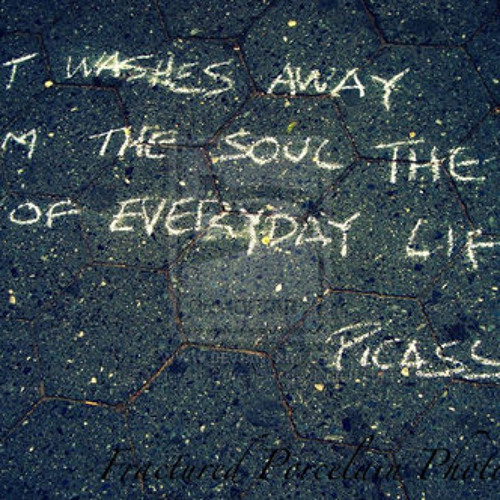 T WASHES AWAY
M THE SOUL THE
OF EVERYDAY LIF
PICASS
Fractured Porcelain Photo